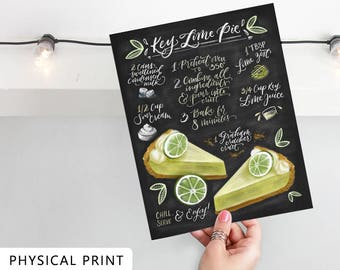 Key Lime Pie
2 cans
sweetened
condensed
milk
1/2 Cup
Sour cream
1. Preheat oven
to 350°
2. Combine all
ingredients
& pour into
crust
3. Bake for
8 minutes
1 TBSP
Lime zest
3/4 Cup Key
Lime Juice
1 Graham
cracker
crust
CHILL
SERVE & Enjoy!
PHYSICAL PRINT